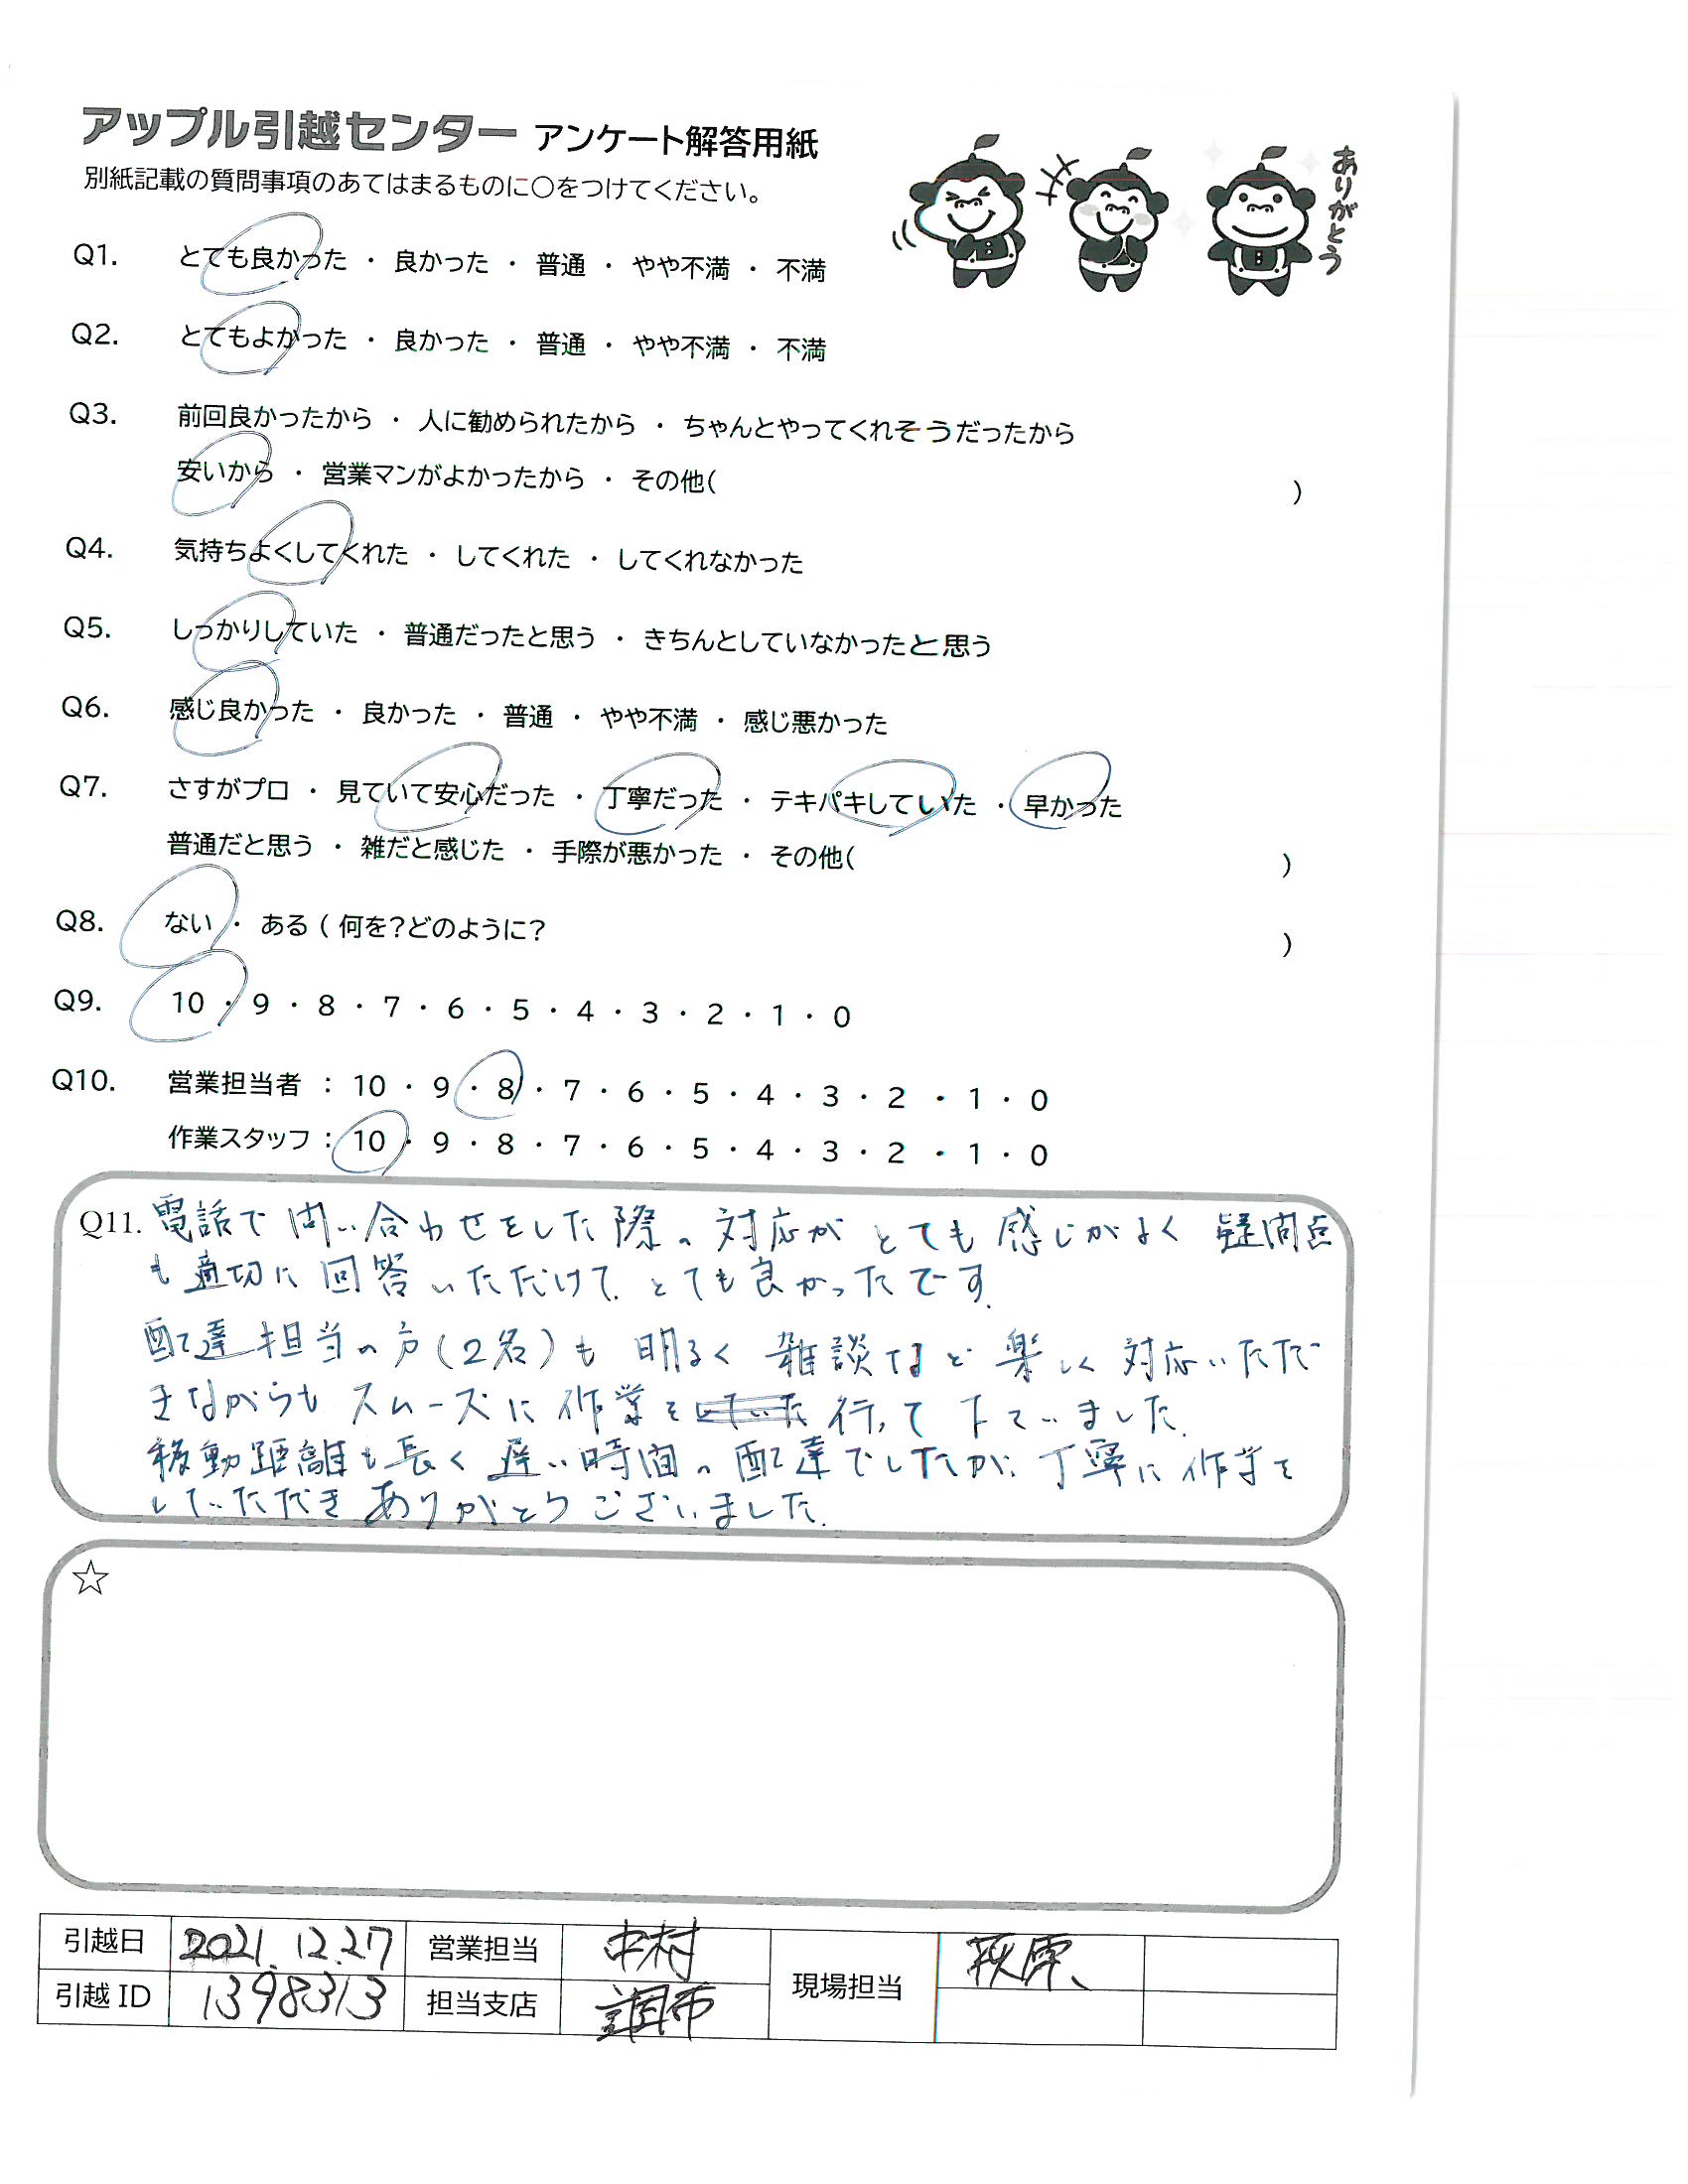 アップル引越センター アンケート解答用紙
別紙記載の質問事項のあてはまるものに〇をつけてください。
ありがとう
Q1. とても良かった ・ 良かった ・ 普通 ・ やや不満 ・ 不満
Q2. とてもよかった ・ 良かった ・ 普通 ・ やや不満 ・ 不満
Q3. 前回良かったから ・ 人に勧められたから ・ ちゃんとやってくれそうだったから
安いから ・ 営業マンがよかったから ・ その他( )
Q4. 気持ちよくしてくれた ・ してくれた ・ してくれなかった
Q5. しっかりしていた ・ 普通だったと思う ・ きちんとしていなかったと思う
Q6. 感じ良かった ・ 良かった ・ 普通 ・ やや不満 ・ 感じ悪かった
Q7. さすがプロ ・ 見ていて安心だった ・ 丁寧だった ・ テキパキしていた ・ 早かった
普通だと思う ・ 雑だと感じた ・ 手際が悪かった ・ その他( )
Q8. ない ・ ある ( 何を?どのように? )
Q9. 10 ・ 9 ・ 8 ・ 7 ・ 6 ・ 5 ・ 4 ・ 3 ・ 2 ・ 1 ・ 0
Q10. 営業担当者 : 10 ・ 9 ・ 8 ・ 7 ・ 6 ・ 5 ・ 4 ・ 3 ・ 2 ・ 1 ・ 0
作業スタッフ : 10 ・ 9 ・ 8 ・ 7 ・ 6 ・ 5 ・ 4 ・ 3 ・ 2 ・ 1 ・ 0
Q11. 電話で問い合わせをした際の対応がとても感じがよく疑問点
も適切に回答いただけて、とても良かったです。
配達担当の方(2名)も明るく雑談など楽しく対応いただ
きながらもスムーズに作業を行って下さいました。
移動距離も長く遅い時間の配達でしたが、丁寧に作業を
していただきありがとうございました。
☆
引越日 2021.12.27 営業担当 中村 現場担当 萩原、
引越 ID 1398313 担当支店 調布